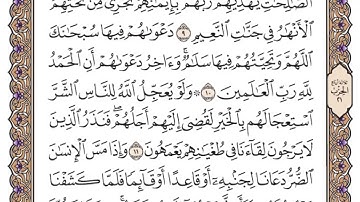 الصَّٰلِحَٰتِ يَهْدِيهِمْ رَبُّهُم بِإِيمَٰنِهِمْ تَجْرِى مِن تَحْتِهِمُ
الْأَنْهَٰرُ فِى جَنَّٰتِ النَّعِيمِ ۝٩ دَعْوَىٰهُمْ فِيهَا سُبْحَٰنَكَ
اللَّهُمَّ وَتَحِيَّتُهُمْ فِيهَا سَلَٰمٌ ۚ وَءَاخِرُ دَعْوَىٰهُمْ أَنِ الْحَمْدُ
لِلَّهِ رَبِّ الْعَٰلَمِينَ ۝١٠ ۞ وَلَوْ يُعَجِّلُ اللَّهُ لِلنَّاسِ الشَّرَّ
اسْتِعْجَالَهُم بِالْخَيْرِ لَقُضِىَ إِلَيْهِمْ أَجَلُهُمْ ۖ فَنَذَرُ الَّذِينَ
لَا يَرْجُونَ لِقَآءَنَا فِى طُغْيَٰنِهِمْ يَعْمَهُونَ ۝١١ وَإِذَا مَسَّ الْإِنسَٰنَ
الضُّرُّ دَعَانَا لِجَنۢبِهِۦٓ أَوْ قَاعِدًا أَوْ قَآئِمًا فَلَمَّا كَشَفْنَا
الحزب
٢١